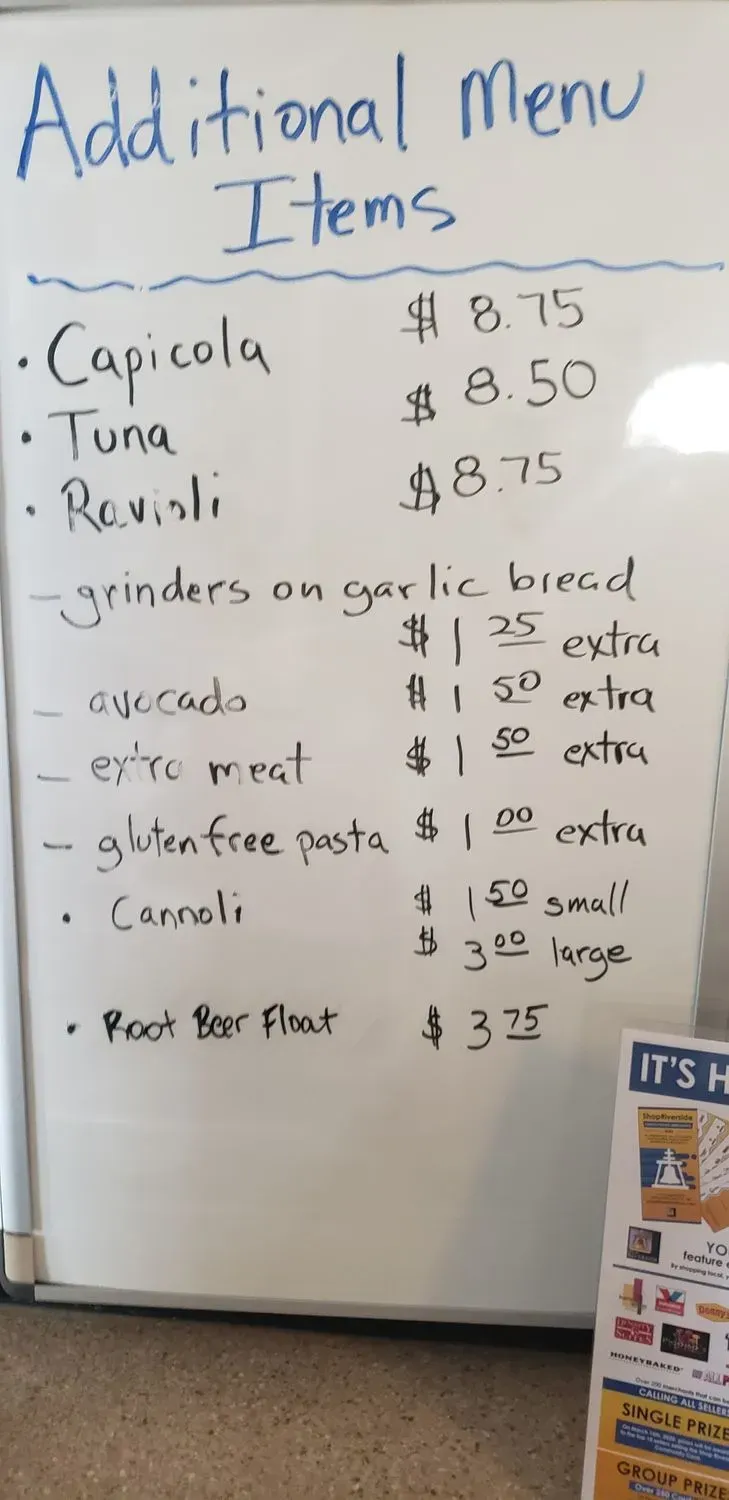 Additional Menu
Items
• Capicola $ 8.75
• Tuna $ 8.50
• Ravioli $ 8.75
- grinders on garlic bread
$ 1 25 extra
- avocado $ 1 50 extra
- extra meat $ 1 50 extra
- gluten free pasta $ 1 00 extra
• Cannoli $ 1 50 small
$ 3 00 large
• Root Beer Float $ 3 75
IT'S H
ShopRiverside
YO
feature
by shopping local,
HONEYBAKED
CALLING ALL SELLERS
SINGLE PRIZE
GROUP PRIZE